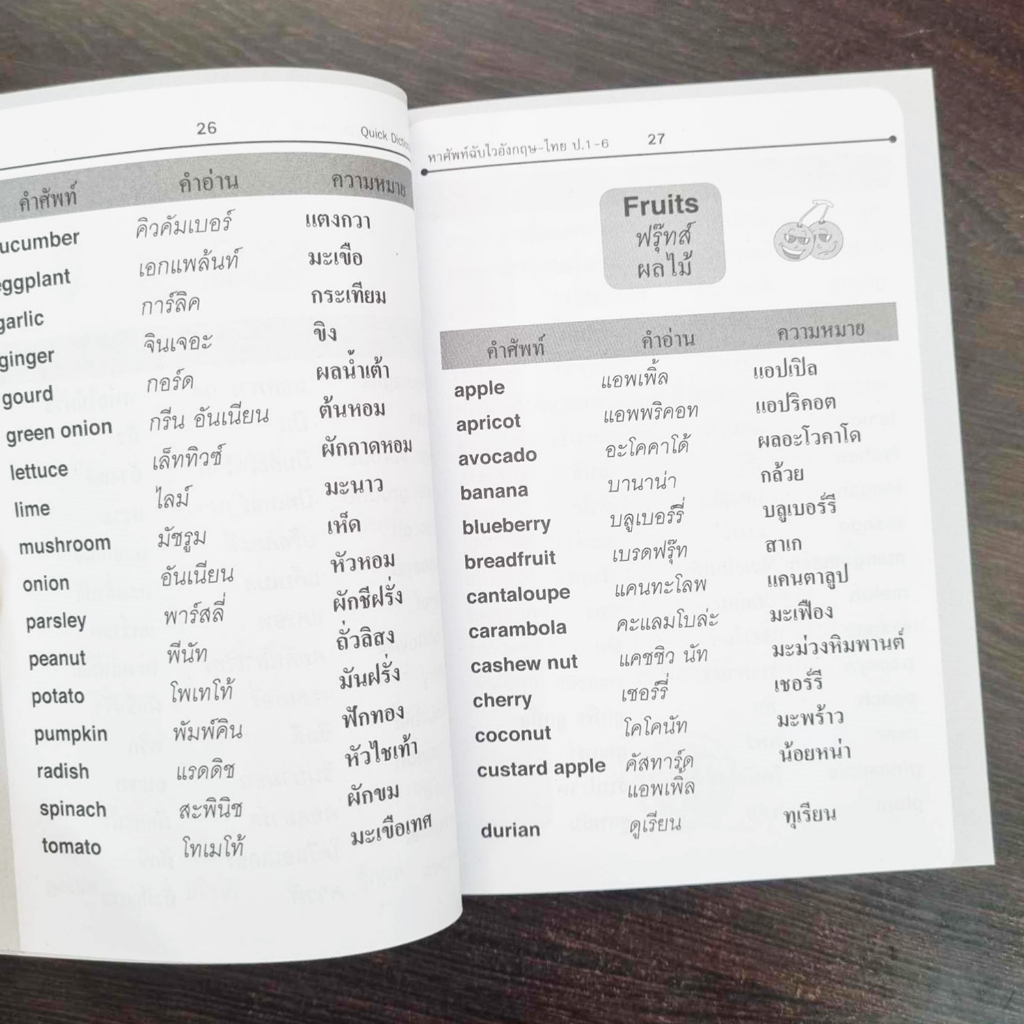 26 Quick
คำศัพท์ คำอ่าน ความหมาย
ucumber คิวคัมเบอร์ แตงกวา
eggplant เอกแพล้นท์ มะเขือ
garlic การ์ลิค กระเทียม
ginger จินเจอะ ขิง
gourd กอร์ด ผลน้ำเต้า
green onion กรีน อันเนียน ต้นหอม
lettuce เล็ททิวซ์ ผักกาดหอม
lime ไลม์ มะนาว
mushroom มัชรูม เห็ด
onion อันเนียน หัวหอม
parsley พาร์สลี่ ผักชีฝรั่ง
peanut พีนัท ถั่วลิสง
potato โพเทโท้ มันฝรั่ง
pumpkin พัมพ์คิน ฟักทอง
radish แรดดิช หัวไชเท้า
spinach สะพินิช ผักขม
tomato โทเมโท้ มะเขือเทศ
หาศัพท์ฉับไวอังกฤษ-ไทย ป.1-6 27
Fruits
ฟรุ๊ทส์
ผลไม้
คำศัพท์ คำอ่าน ความหมาย
apple แอพเพิ้ล แอปเปิล
apricot แอพพริคอท แอปริคอต
avocado อะโคคาโด้ ผลอะโวคาโด
banana บานาน่า กล้วย
blueberry บลูเบอร์รี่ บลูเบอร์รี
breadfruit เบรดฟรุ๊ท สาเก
cantaloupe แคนทะโลพ แคนตาลูป
carambola คะแลมโบล่ะ มะเฟือง
cashew nut แคชชิว นัท มะม่วงหิมพานต์
cherry เชอร์รี่ เชอร์รี
coconut โคโคนัท มะพร้าว
custard apple คัสทาร์ด น้อยหน่า
แอพเพิ้ล
durian ดูเรียน ทุเรียน